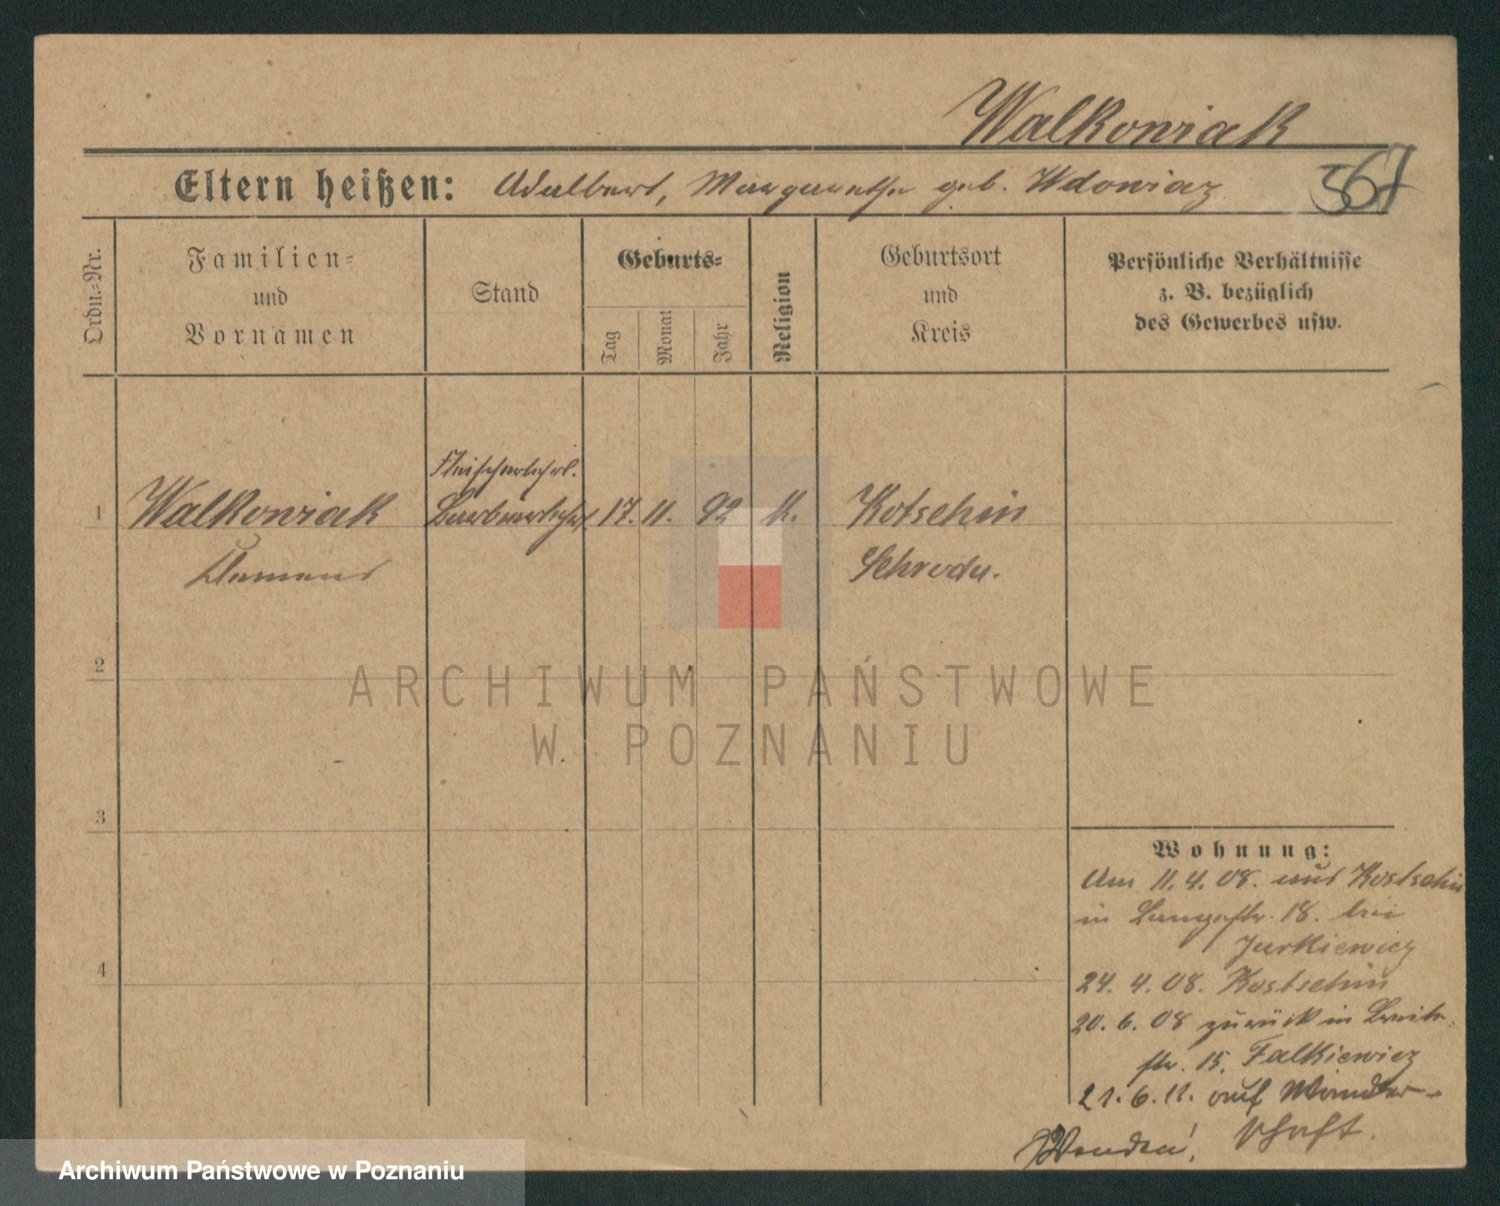 Walkowiak
367
Eltern heißen: Adalbert, Margarethe geb. Wdowiaz
Ordn.-Nr.
Familien-
und
Vornamen
Stand
Geburts-
Tag
Monat
Jahr
Religion
Geburtsort
und
Kreis
Persönliche Verhältnisse
z. B. bezüglich
des Gewerbes usw.
Fleischerlehrl.
1 Walkowiak Barbierlehrl. 17. 11. 92 K. Kotschin
Clemens Schroda.
2
ARCHIWUM PAŃSTWOWE
W POZNANIU
3
Wohnung:
Am 11.4.08. aus Kostschin
in Langestr. 18. bei
Jurkiewicz
4
24. 4. 08. Kostschin
20. 6. 08 zurück in Breite-
str. 15. Falkiewicz
21.6.11. auf Wander-
schaft.
Wenden!
Archiwum Państwowe w Poznaniu